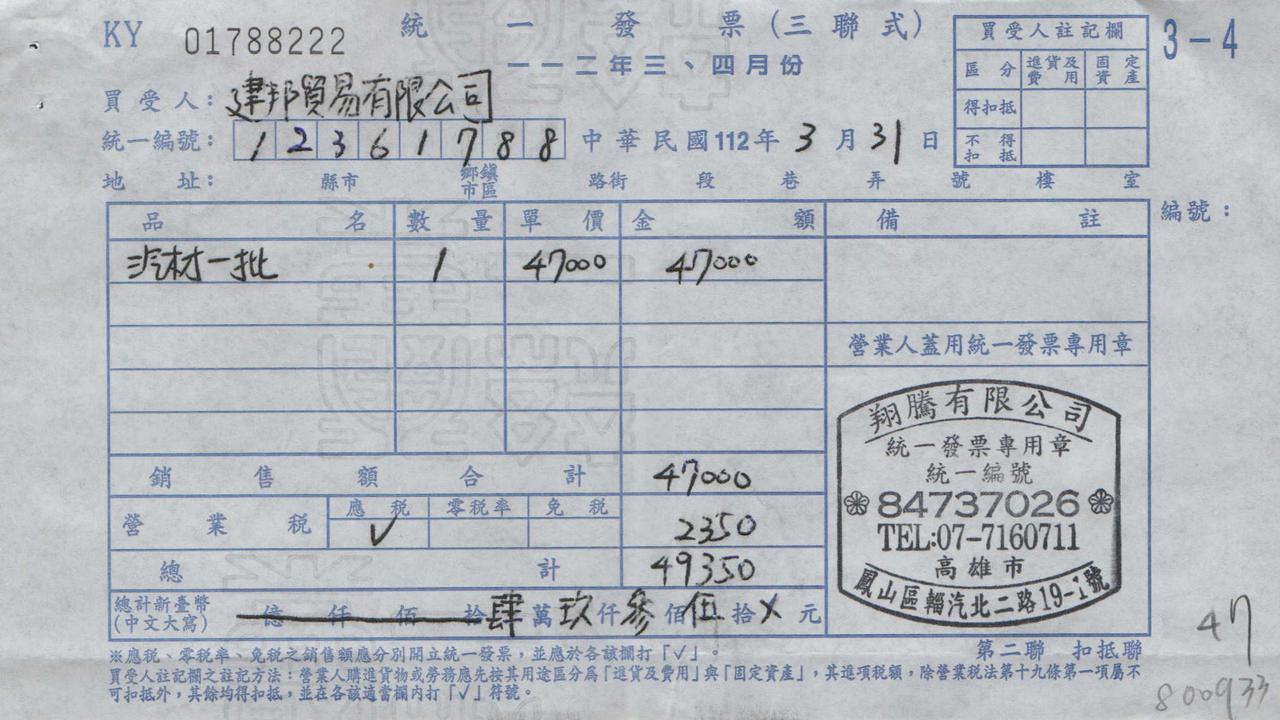 KY 01788222 統一發票(三聯式) 3-4
一一二年三、四月份
買受人註記欄
區分 進貨及費用 固定資產
得扣抵
不得扣抵
買受人:建邦貿易有限公司
統一編號:12361788 中華民國112年3月31日
地址: 縣市 鄉鎮市區 路街 段 巷 弄 號 樓 室
品名 數量 單價 金額 備註 編號:
汽材一批 1 47000 47000
營業人蓋用統一發票專用章
翔騰有限公司
統一發票專用章
統一編號
84737026
TEL:07-7160711
高雄市
鳳山區輜汽北二路19-1號
銷售額合計 47000
營業稅 應稅 ✓ 零稅率 免稅 2350
總計 49350
總計新臺幣(中文大寫) 億仟佰拾肆萬玖仟參佰伍拾X元
第二聯 扣抵聯
※應稅、零稅率、免稅之銷售額應分別開立統一發票,並應於各該欄打「✓」。
買受人註記欄之註記方法:營業人購進貨物或勞務應先按其用途區分為「進貨及費用」與「固定資產」,其進項稅額,除營業稅法第十九條第一項屬不
可扣抵外,其餘均得扣抵,並在各該適當欄內打「✓」符號。
47
800933